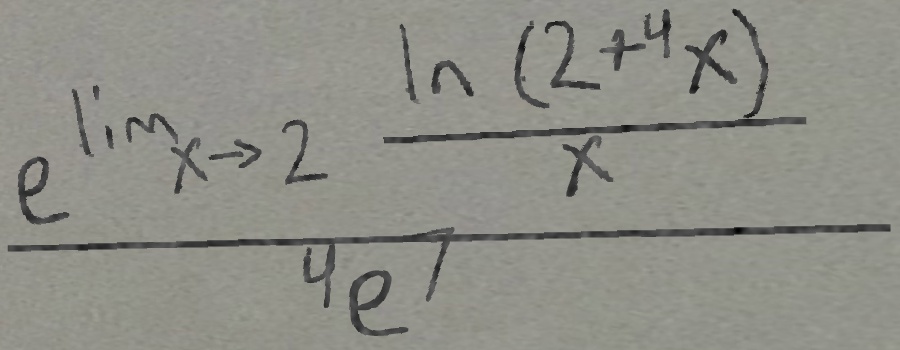 \frac{e^{\lim_{x \to 2} \frac{\ln (2 + ^4x)}{x}}}{^4e^7}